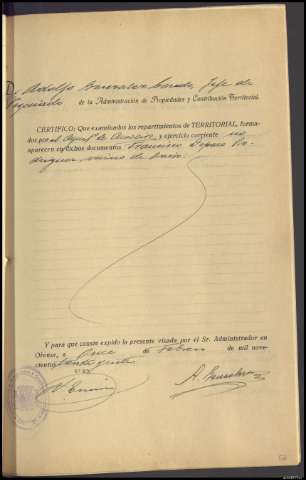 D. Adolfo González Jefe de
Negociado de la Administración de Propiedades y Contribución Territorial
CERTIFICO: Que examinados los repartimientos de TERRITORIAL, forma-
dos por el Aynt.º de y ejercicio corriente no
aparecen en dichos documentos Francisco
vecino de
Y para que conste expido la presente visada por el Sr. Administrador en
Orense, a once de Febrero de mil nove-
cientos veinte y
V.º B.º,
A. González